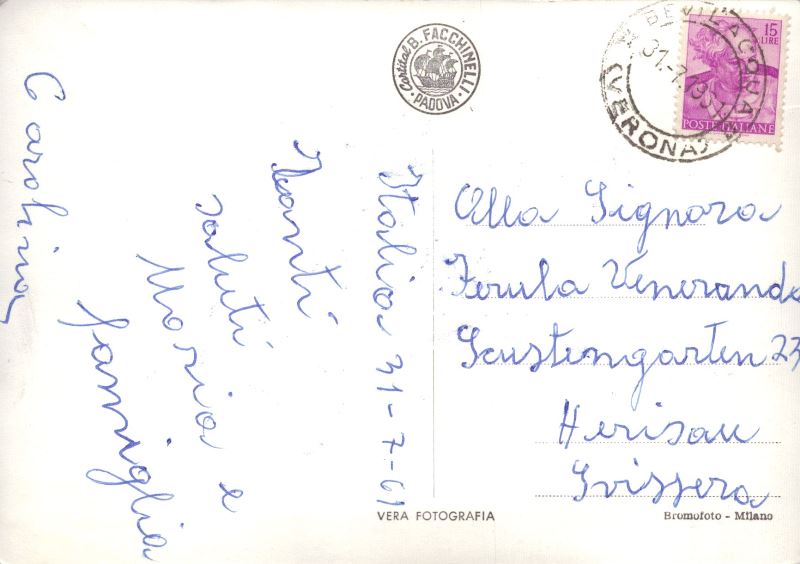 Cartital B. FACCHINELLI · PADOVA ·
BEVILACQUA
(VERONA)
31.7.1961
15
LIRE
POSTE ITALIANE
Italia 31-7-61
Tanti
saluti
Maria e
famiglia
Carolina
Alla Signora
Ferula Veneranda
Scustengarten 23
Herisau
Svissera
VERA FOTOGRAFIA
Bromofoto - Milano